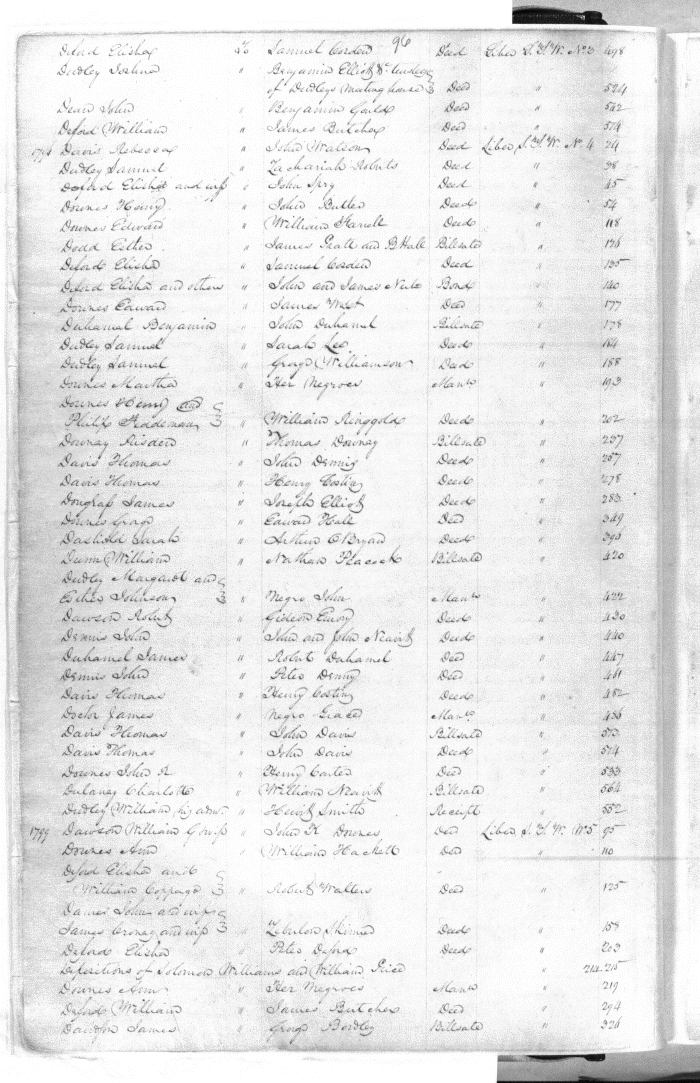 96
Deford Elisha To Samuel Corden Deed Liber S.T.W. No 3 498
Dudley Joshua " Benjamin Elliott &c trustees
of Dudleys Meeting house Deed " 524
Dean John " Benjamin Gould Deed " 542
Deford William " James Butcher Deed " 574
Davis Rebecca " John Watson Deed Liber S.T.W. No. 4 24
Dudley Samuel " Zachariah Roberts Deed " 38
Deford Elisha and wife " John Spry Deed " 45
Downes Henry " John Butler Deed " 54
Downes Edward " William Harell Deed " 118
Dodd Esther " James Pratt and B Hall Billsale "
Deford Elisha " Samuel Corden Deed " 135
Deford Elisha and others " John and James Nevil Bond " 140
Downes Edward " James West Deed " 177
Duhamel Benjamin " John Duhamel Billsale " 178
Dudley Samuel " Sarah Lee Deed " 184
Dudley Samuel " George Williamson Deed " 188
Downes Martha " Her Negroes Mans " 193
Downes Henry and
Philip Fiddeman " William Ringgold Deed " 202
Downey Risden " Thomas Downey Billsale " 237
Davis Thomas " John Dennis Deed " 257
Davis Thomas " Henry Costin Deed " 278
James " Joseph Elliott Deed " 283
Downes George " Edward Hall Deed " 349
Dashield Sarah " Arthur O Bryan Deed " 390
Dunn William " Nathan Peacock Billsale " 420
Dudley Margaret and
Esther Johnson " Negro John Mans " 422
Dawson Robert " Gideon Emory Deed " 430
Dennis John " John and John Nevitt Deed " 440
Duhamel James " Robert Duhamel Deed " 447
Dennis John " Peter Denny Deed " 461
Davis Thomas " Henry Costin Deed " 482
Doctor James " Negro Grace Mans " 486
Davis Thomas " John Davis Billsale " 573
Davis Thomas " John Davis Deed " 574
Downes John R " Henry Carter Deed " 533
Dulaney Charlotte " William Nevitt Billsale " 564
Dudley William his admr. " Smith Receipt " 552
1799 Dawson William & wife " John K Downes Deed Liber S.T.W. No 5 95
Downes Ann " William Hackett Deed " 110
Deford Elisha and
William Coppage " Robert Walters Deed " 125
Dames John and wife
James Croney and wife " Zebulon Skinner Deed " 158
Deford Elisha " Peter Deford Deed " 203
Depositions of Solomon Williams and William Price " 214.215
Downes Ann " Her Negroes Mans " 219
Deford William " James Butcher Deed " 294
Dawson James " George Bordley Billsale " 324